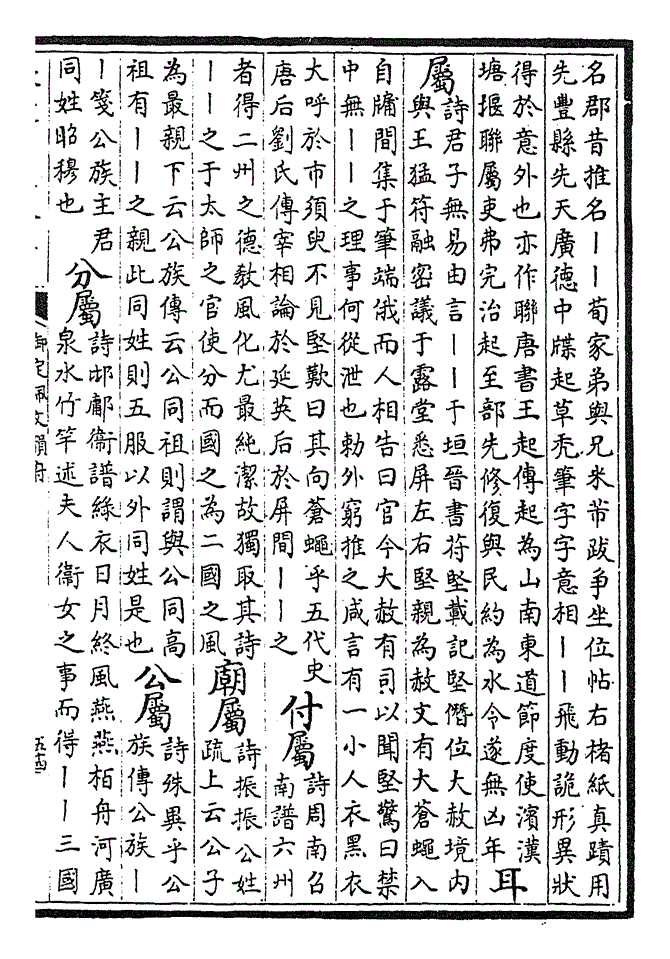 名郡昔推名丨丨荀家弟與兄米芾跋爭坐位帖右楮紙真蹟用
先豐縣先天廣德中牒起草禿筆字字意相丨丨飛動詭形異狀
得於意外也亦作聯唐書王起傳起為山南東道節度使濱漢
塘堰聯屬吏弗完治起至部先修復與民約為水令遂無凶年
耳
屬
詩君子無易由言丨丨于垣晉書苻堅載記堅僭位大赦境内
與王猛符融密議于露堂悉屏左右堅親為赦文有大蒼蠅入
自牖間集于筆端俄而人相告曰官今大赦有司以聞堅驚曰禁
中無丨丨之理事何從泄也勅外窮推之咸言有一小人衣黑衣
大呼於市須臾不見堅歎曰其向蒼蠅乎五代史
唐后劉氏傳宰相論於延英后於屏間丨丨之
付屬
詩周南召
南譜六州
者得二州之德教風化尤最純潔故獨取其詩
丨丨之于太師之官使分而國之為二國之風
廟屬
詩振振公姓
疏上云公子
為最親下云公族傳云公同祖則謂與公同高
祖有丨丨之親此同姓則五服以外同姓是也
公屬
詩殊異乎公
族傳公族丨
丨箋公族主君
同姓昭穆也
分屬
詩邶鄘衞譜綠衣日月終風燕燕柏舟河廣
泉水竹竿述夫人衞女之事而得丨丨三國
御定佩文韻府